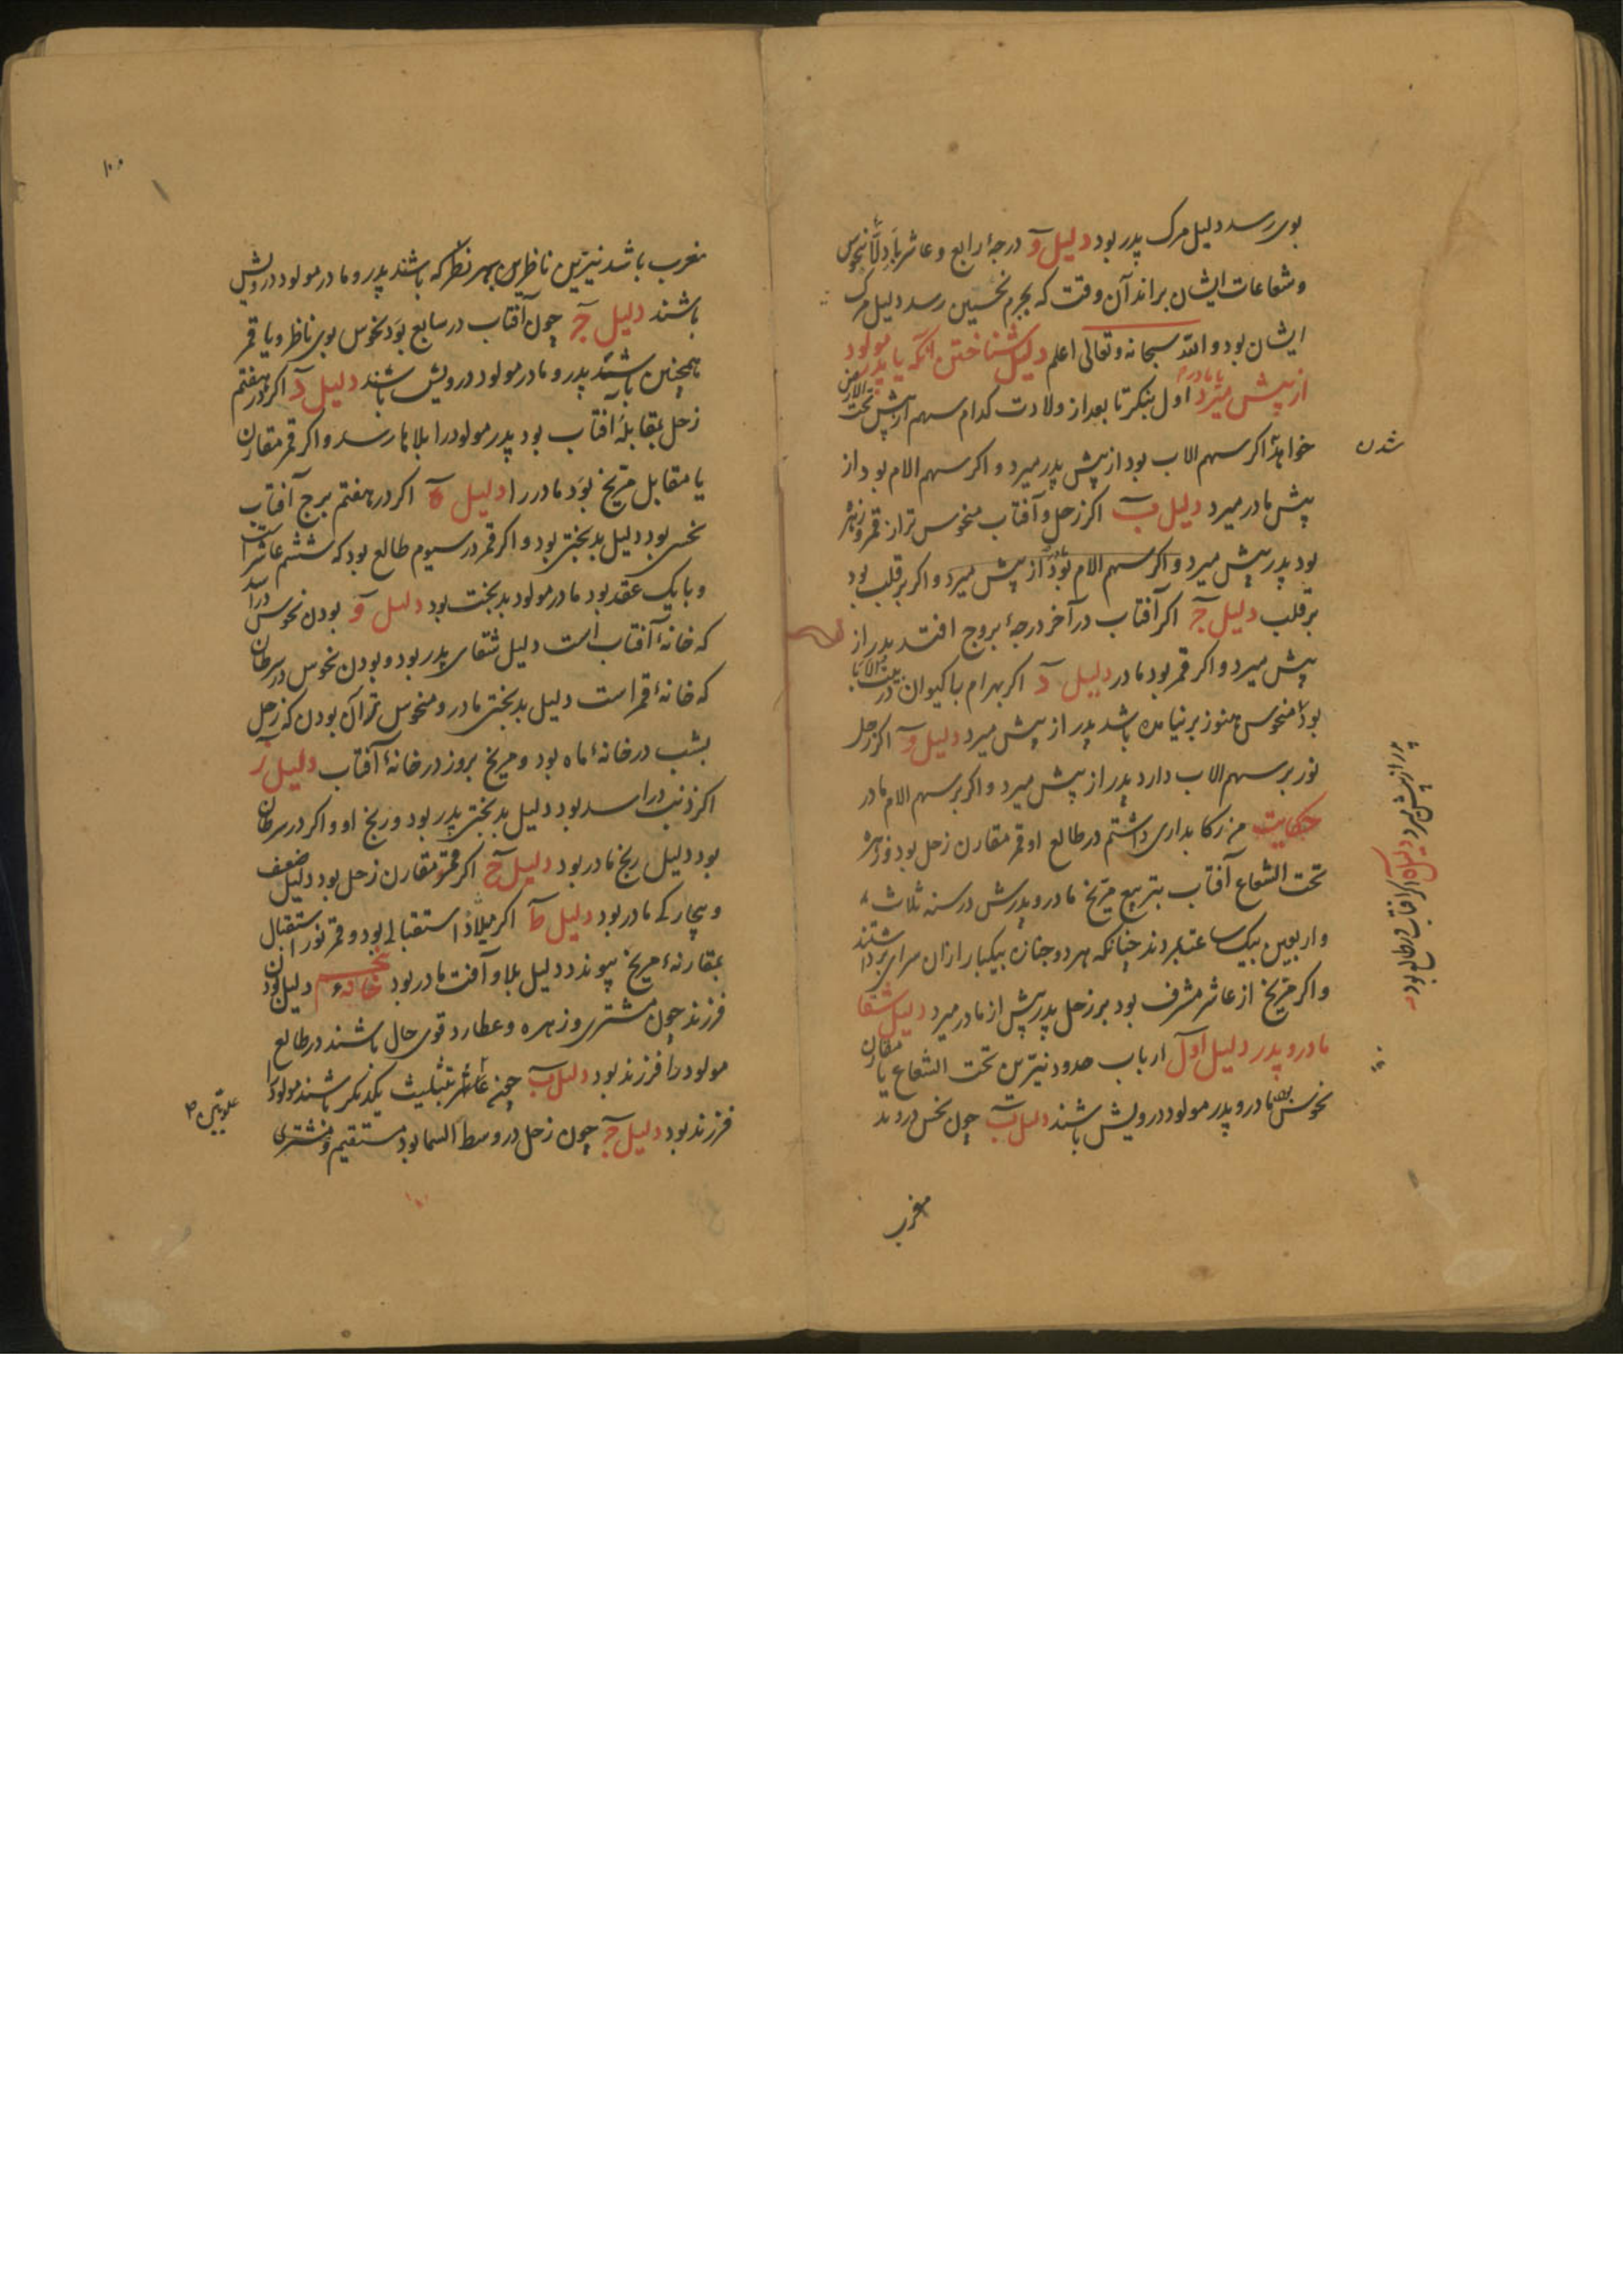 بوی رسد دلیل مرک پدر بود دلیل وَ درجهٔ رابع و عاشر با دلّا نحوس
و شعاعات ایشان براند آن وقت که بجرم نحسین رسد دلیل مرک
ایشان بود والله سبحانه و تعالی اعلم دلیل شناختن انکه یا پدر مولود
از پیش میرد یا مادرم اول بنکر تا بعد از ولادت کدام سهم از پیش تحت الارض
خواهد اکر سهم الاب بود از پیش پدر میرد و اکر سهم الام بود از
شدن
پیش مادر میرد دلیل ب اکر زحل و آفتاب منحوس تر از قمر و زهره
بود پدر پیش میرد و اکر سهم الام بود از پیش میرد و اکر بر قلب بود
بر قلب دلیل ج اکر آفتاب در آخر درجهٔ بروج افتد پدر از
پیش میرد و اکر قمر بود مادر دلیل د اکر بهرام با کیوان در
بود منحوس هنوز بر نیامده باشد پدر از پیش میرد دلیل و اکر زحل
نور بر سهم الاب دارد پدر از پیش میرد و اکر بر سهم الام مادر
حکایت من رکابداری داشتم در طالع او قمر مقارن زحل بود و زهره
تحت الشعاع آفتاب بتربیع مریخ مادر و پدرش در سنه ثلاث
و اربعین بیک ساعت بمردند چنانکه هر دو جنازه بیکبار از ان سرای برداشتند
و اکر مریخ از عاشر مشرف بود بر زحل پدر پیش از مادر میرد دلیل شقا
مادر و پدر دلیل اول ارباب حدود نیّرین تحت الشعاع یا مقارن
نحوس بود مادر و پدر مولود درویش باشند دلیل ب چون نحس در وتد
مغرب
پدر از پیش میرد دلیل ه اکر آفتاب در طالع بود
۱۰۰
مغرب باشد نیّرین ناظر بهر نظر که باشند پدر و مادر مولود درویش
باشند دلیل ج چون آفتاب در سابع بود نحوس بوی ناظر و یا قمر
همچنین باشند پدر و مادر مولود درویش باشند دلیل د اکر در هفتم
زحل بمقابلهٔ آفتاب بود پدر مولود را بلاها رسد و اکر قمر مقارن
یا مقابل مریخ بود مادر را دلیل ه اکر در هفتم برج آفتاب
نحسی بود دلیل بدبختی بود و اکر قمر در سیوم طالع بود که ششم عاشر است
و با یک عقد بود مادر مولود بدبخت بود دلیل و بودن نحوس در اسد
که خانهٔ آفتاب است دلیل شقای پدر بود و بودن نحوس در سرطان
که خانهٔ قمر است دلیل بدبختی مادر و منحوس تر آن بودن که زحل
بشب در خانهٔ ماه بود و مریخ بروز در خانهٔ آفتاب دلیل ز
اکر ذنب در اسد بود دلیل بدبختی پدر بود و رنج او و اکر در سرطان
بود دلیل رنج مادر بود دلیل ح اکر قمر مقارن زحل بود دلیل ضعف
و بیچارکی مادر بود دلیل ط اکر میلاد استقبالی بود و قمر نور استقبال
بمقارنهٔ مریخ پیوندد دلیل بلا و آفت مادر بود خانهٔ پنجم دلیل بودن
فرزند چون مشتری و زهره و عطارد قوی حال باشند در طالع
مولود را فرزند بود دلیل ب چون بتثلیث یکدیکر باشند مولود را
فرزند بود دلیل ج چون زحل در وسط السما بود مستقیم و مشتری
علویین